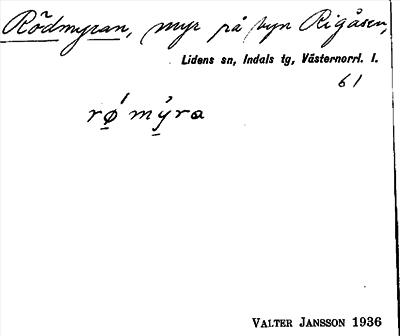 Rödmyran, myr på byn Rigåsen,
Lidens sn, Indals tg, Västernorrl. l.
61
rǿ̱ mý̱ra
VALTER JANSSON 1936